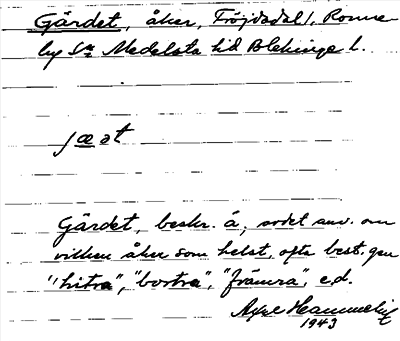 Gärdet, åker, Fröjdadal, Ronne-
by Sn Medelsta hd Blekinge l.
jæat
Gärdet, beskr. å, ordet anv. om
vilken åker som helst, ofta best. gm
"hitra", "bortra", "främra", e.d.
Axel Hammelin
1943